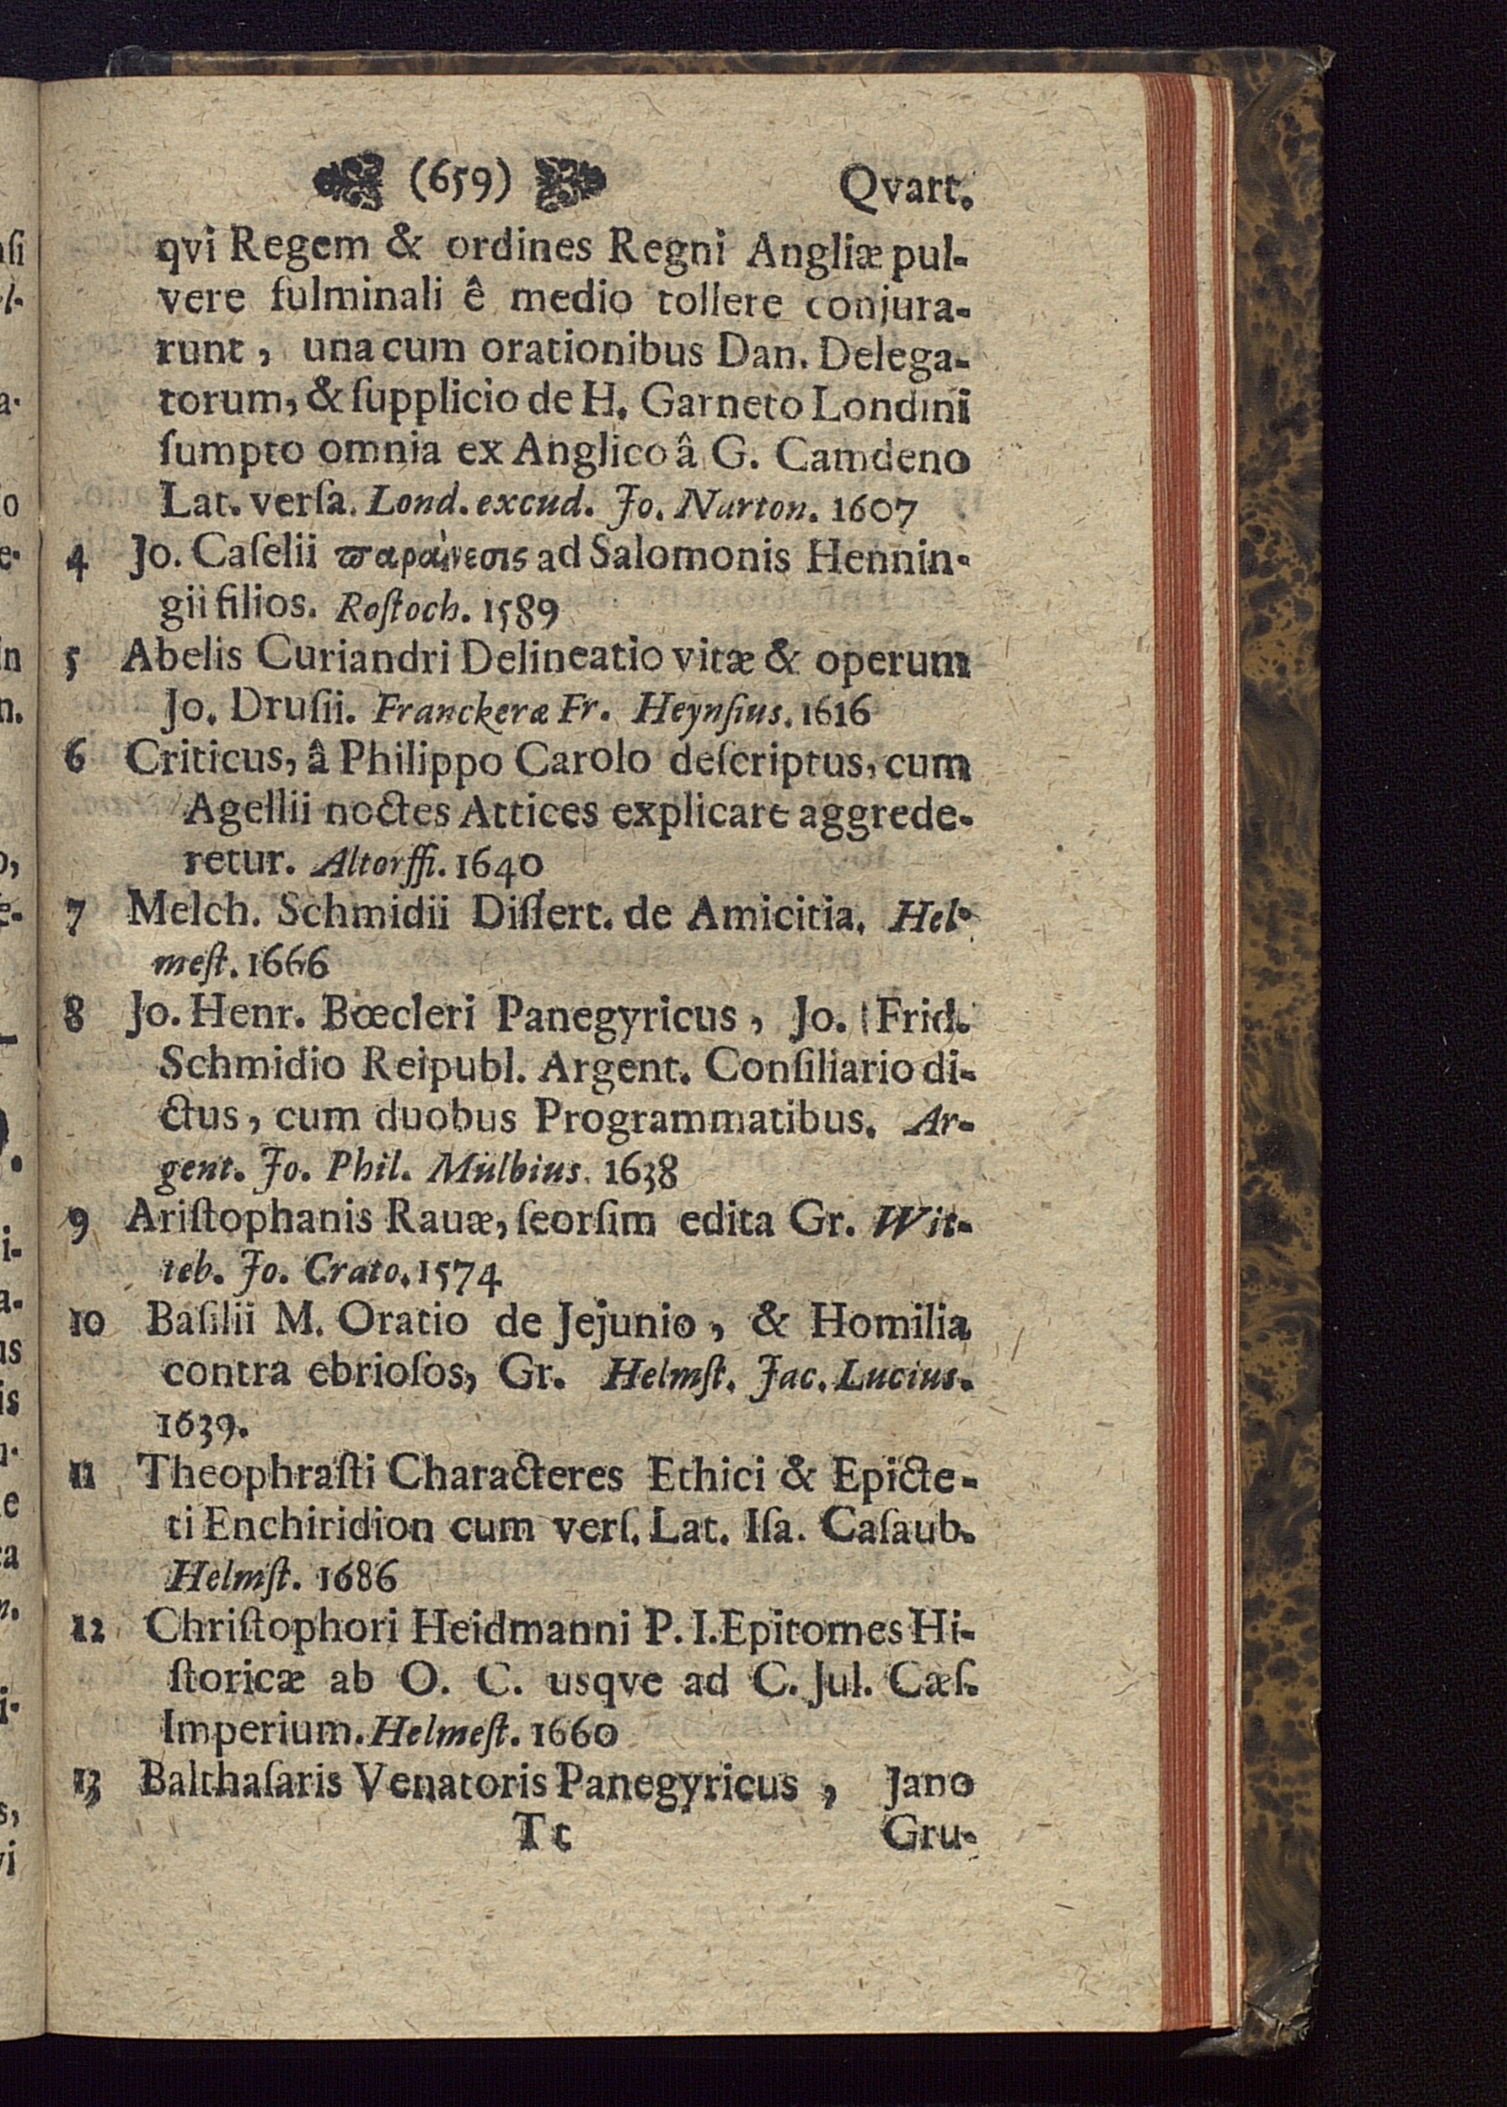 (659) Qvart.
qvi Regem & ordines Regni Angliæ pul-
vere fulminali ê medio tollere conjura-
runt, una cum orationibus Dan. Delega-
torum, & ſupplicio de H. Garneto Londini
ſumpto omnia ex Anglico â G. Camdeno
Lat. verſa. Lond. excud. Jo. Narton. 1607
4 Jo. Caſelii ϖαραίνεσις ad Salomonis Hennin-
gii filios. Roſtoch. 1589
5 Abelis Curiandri Delineatio vitæ & operum
Jo. Druſii. Franckeræ Fr. Heynſius. 1616
6 Criticus, â Philippo Carolo deſcriptus, cum
Agellii noctes Attices explicare aggrede-
retur. Altorffi. 1640
7 Melch. Schmidii Diſſert. de Amicitia. Hel-
meſt. 1666
8 Jo. Henr. Bœcleri Panegyricus, Jo. Frid.
Schmidio Reipubl. Argent. Conſiliario di-
ctus, cum duobus Programmatibus. Ar-
gent. Jo. Phil. Mülbius. 1638
9 Ariſtophanis Rauæ, ſeorſim edita Gr. Wit-
teb. Jo. Crato. 1574
10 Baſilii M. Oratio de Jejunio, & Homilia
contra ebrioſos, Gr. Helmſt. Jac. Lucius.
1639.
11 Theophraſti Characteres Ethici & Epicte-
ti Enchiridion cum verſ. Lat. Iſa. Caſaub.
Helmſt. 1686
12 Chriſtophori Heidmanni P. I. Epitomes Hi-
ſtoricæ ab O. C. usqve ad C. Jul. Cæſ.
Imperium. Helmeſt. 1660
13 Balthaſaris Venatoris Panegyricus, Jano
Tt Gru-